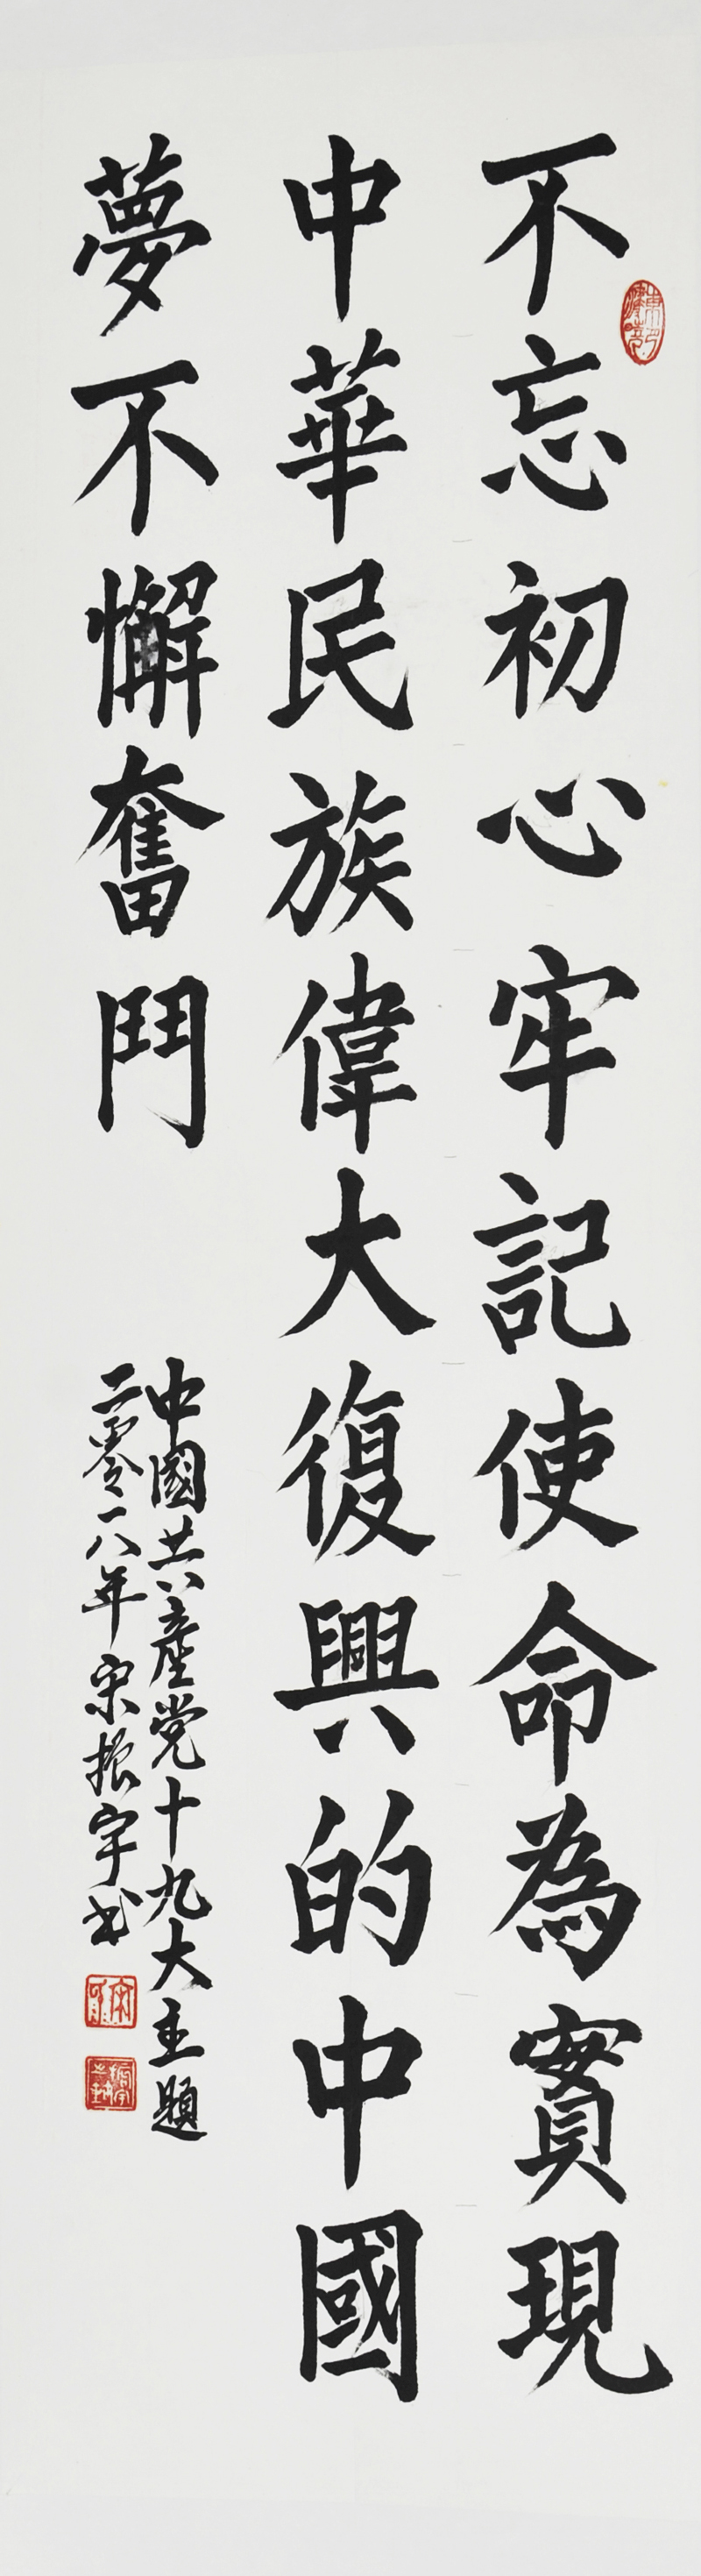 不忘初心牢記使命為實現
中華民族偉大復興的中國
夢不懈奮鬥
中國共產党十九大主題
二零一八年宋振宇书